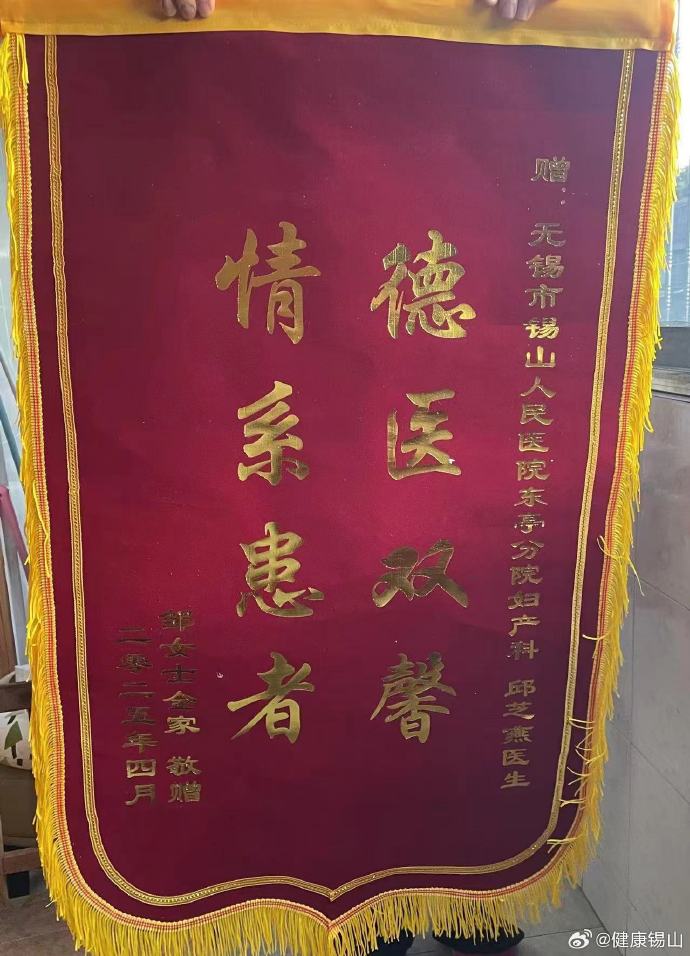 赠：无锡市锡山人民医院东亭分院妇产科 邱芝燕医生
德医双馨
情系患者
邹女士全家 敬赠
二零二五年四月
@健康锡山